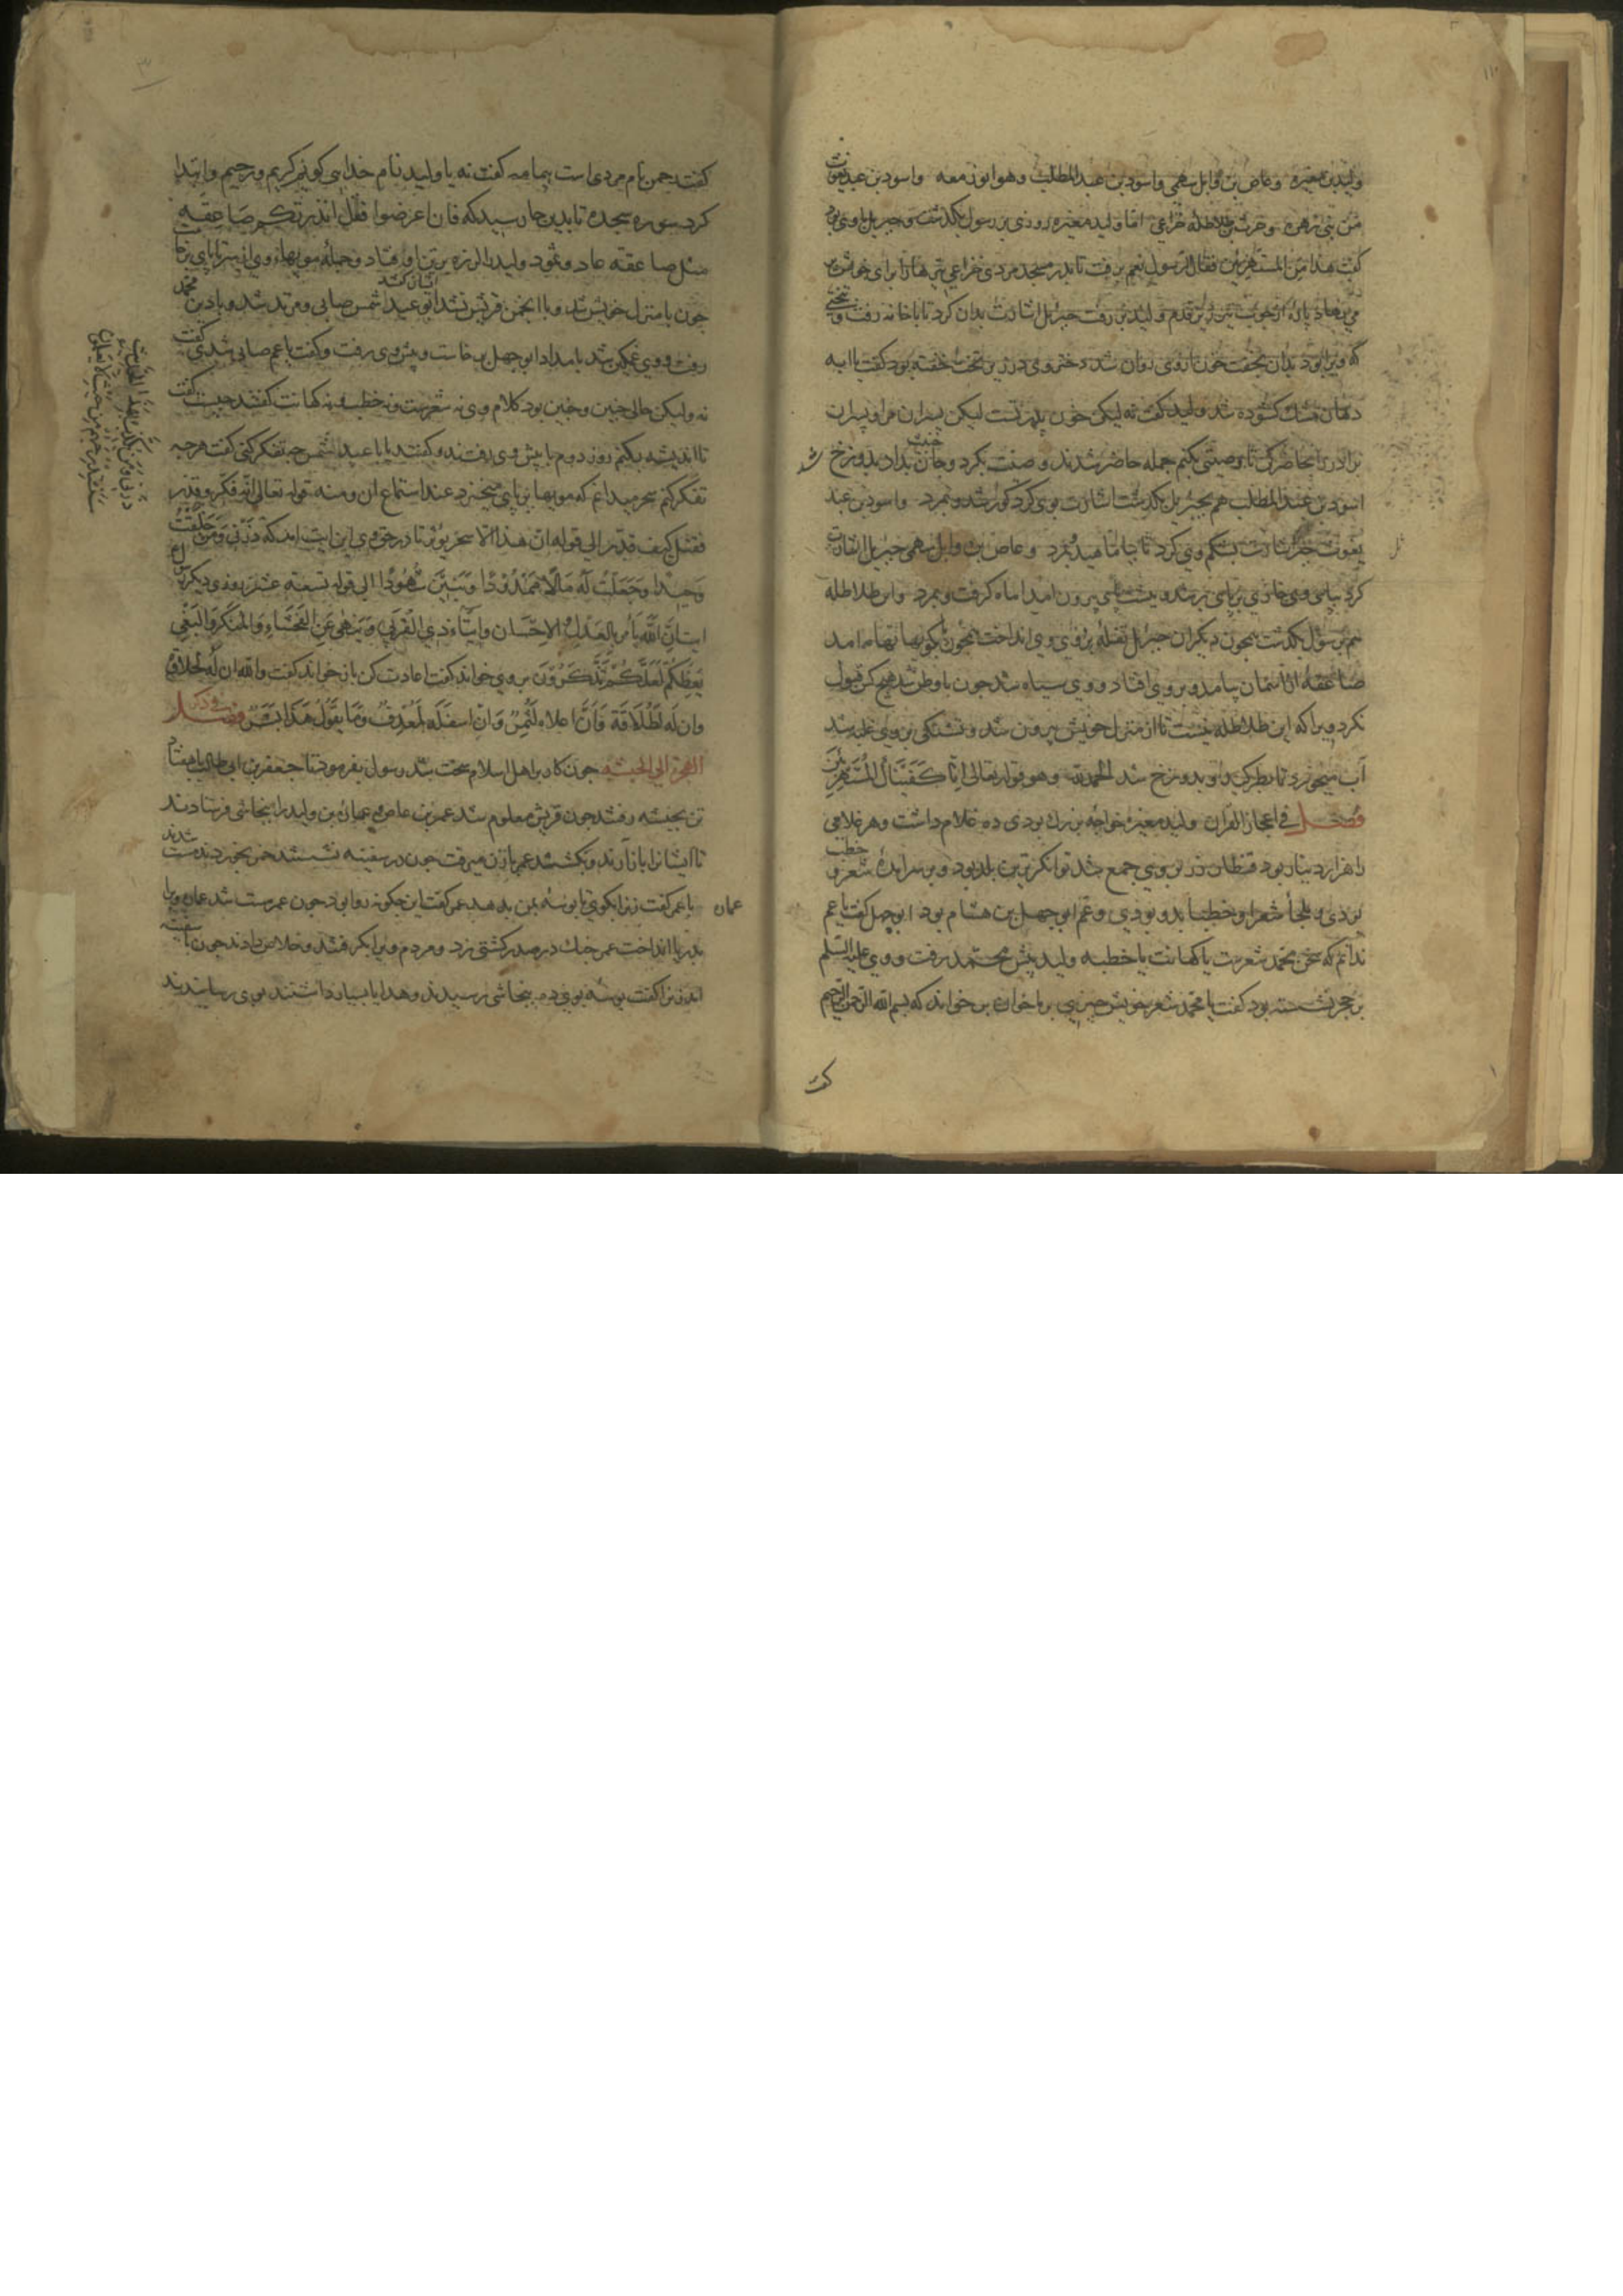 ولید بن مغیره وعاص بن وایل سهمی واسود بن عبد المطلب وهو ابو زمعه واسود بن عبد یغوث
من بنی زهره وحرث بن طلاطله خزاعی اما ولید مغیره روزی بر رسول بگذشت وجبریل با وی بود
گفت هذا من المستهزئین فقال الرسول نعم برفت تا بدر مسجد مردی خزاعی تیرها را برای خویش پر
می نهاد پاره از چوب تیر بر قدم ولید بر رفت جبریل اشارت بدان کرد تا با خانه رفت و تختی
که ویرا بود بدان بخفت خون از وی روان شد دختر وی در زیر تخت خفته بود گفت یا ابه
دهان مشک کشوده شد ولید گفت نه لیکن خون پدر تست لیکن پسران مرا و پسران
برادر را حاضر کن تا وصیتی بکنم جمله حاضر شدند وصیت بکرد و جان خبیث بداد بدوزخ شد
اسود بن عبد المطلب هم بجبریل بگذشت اشارت بوی کرد کور شد و بمرد واسود بن عبد
یغوث جبریل اشارت بشکم وی کرد تا بیاماهید و بمرد وعاص بن وایل سهمی جبریل اشارت
کرد بپای وی خاری بر پای بر شد و بپشت پای بیرون امد اماه گرفت و بمرد وابن طلاطله
هم بر سول بگذشت همچون دیگران جبریل تفله بر روی وی انداخت همچون بکوهها تهامه امد
صاعقه از آسمان بیامد و بر وی افتاد و وی سیاه شد چون باوطن شد هیچ کس قبول
نکرد ویرا که این طلاطله نیست تا از منزل خویش بیرون شد و تشنگی بر وی غلبه شد
آب میخورد تا بطرکید و بدوزخ شد الحمدلله وهو قوله تعالی انا کفیناک المستهزئین
فصل فی اعجاز القرآن ولید مغیره خواجه بزرک بودی ده غلام داشت وهر غلامی
را هزار دینار بود قنطار زر بر وی جمع شد توانکرترین بلد بود و بر سر آمده شعر و خطب
بودی و ملجأ شعرا وخطبا بدو بودی وعم ابو جهل بن هشام بود ابو جهل گفت یا عم
ندانم که سخن محمد شعرست یا کهانت یا خطبه ولید پیش محمد رفت و وی علیه السلم
بر حجر نشسته بود گفت یا محمد شعر خویش چیزی بر ما خوان بر خواند که بسم الله الرحمن الرحیم
گفت
گفت رحمن نام مردی است بیمامه گفت نه یا ولید نام خدایی گویم کریم ورحیم وابتدا
کرد سوره سجده تا بدین جا رسید که فان اعرضوا فقل انذرتکم صاعقه
مثل صاعقه عاد وثمود ولید را لرزه بر تن افتاد وجمله مویهاء وی از سر تا پای بر خاست
چون با منزل خویش شد و با انجمن قریش نشد ایشان گفتند ابو عبد شمس صابی ومرتد شد و با دین محمد
رفت و وی غمگین شد بامداد ابو جهل بر خاست و پیش وی رفت و گفت یا عم صابی شدی گفت
نه ولیکن حالی چنین و چنین بود کلام وی نه شعرست ونه خطبه ونه کهانت گفتند چیست گفت
تا اندیشه بکنم روز دوم با پیش وی رفتند و گفتند یا با عبد الشمس چه تفکر کنی گفت هرچه
تفکر کنم سحر میدانم که مویها بر پای میخیزد عند استماع آن ومنه قوله تعالی انه فکر وقدر
فقتل کیف قدر الی قوله ان هذا الا سحر یؤثر تا در حق وی این ایت امد که ذرنی ومن خلقت
وحیدا وجعلت له مالا ممدودا وبنین شهودا الی قوله تسعة عشر روزی دیگر
ایت ان الله یأمر بالعدل والاحسان وایتاء ذی القربی وینهی عن الفحشاء والمنکر والبغی
یعظکم لعلکم تذکرون بر وی خواند گفت اعادت کن باز خواند گفت والله ان له لحلاوة
وان له لطلاقة وان اعلاه لثمر وان اسفله لمغدق وما یقول هذا بشر فصل فی ذکر
الهجرة الی الحبشه چون کار بر اهل اسلام سخت شد رسول بفرمود تا جعفر بن ابی طالب با هفتاد
تن بحبشه رفتند چون قریش معلوم شد عمر بن عاص و عماره بن ولید را بنجاشی فرستادند
تا ایشانرا باز آرند و بکشند عمر با زن میرفت چون در سفینه نشستند خمر بخوردند مست شدند
با عمر گفت زنرا بکوی تا بوسه بمن بدهد عمر گفت این چگونه روا بود چون عمر مست شد عمار ویرا
عمان
بدریا انداخت عمر چنک در صدر کشتی زد و مردم ویرا بگرفتند و خلاص دادند چون با سفینه
امد زنرا گفت بوسه بوی ده بنجاشی رسیدند وهدایا بسیار داشتند بوی رسانیدند